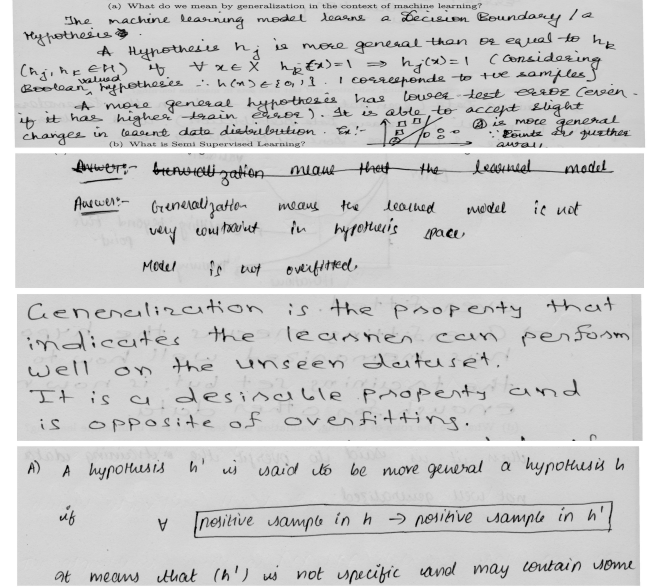 (a) What do we mean by generalization in the context of machine learning?
The machine learning model learns a Decision Boundary / a
Hypothesis
A Hypothesis hj is more general than or equal to hk
(hj, hk ∈ H) if ∀ x ∈ X hk(x)=1 ⇒ hj(x)=1 (Considering
Boolean valued hypothesis ∴ h(x) ∈ {0,1}. 1 corresponds to +ve samples)
A more general hypothesis has lower test error (even
if it has higher train error). It is able to accept slight
changes in learnt data distribution. Ex:- ② is more general
∵ Points are further
away
(b) What is Semi Supervised Learning?
Answer:- Generalization means that the learned model
Answer:- Generalization means the learned model is not
very constraint in hypothesis space.
Model is not overfitted.
Generalization is the property that
indicates the learner can perform
well on the unseen dataset.
It is a desirable property and
is opposite of overfitting.
A) A hypothesis h' is said to be more general a hypothesis h
if ∀ positive sample in h → positive sample in h'
It means that (h') is not specific and may contain some